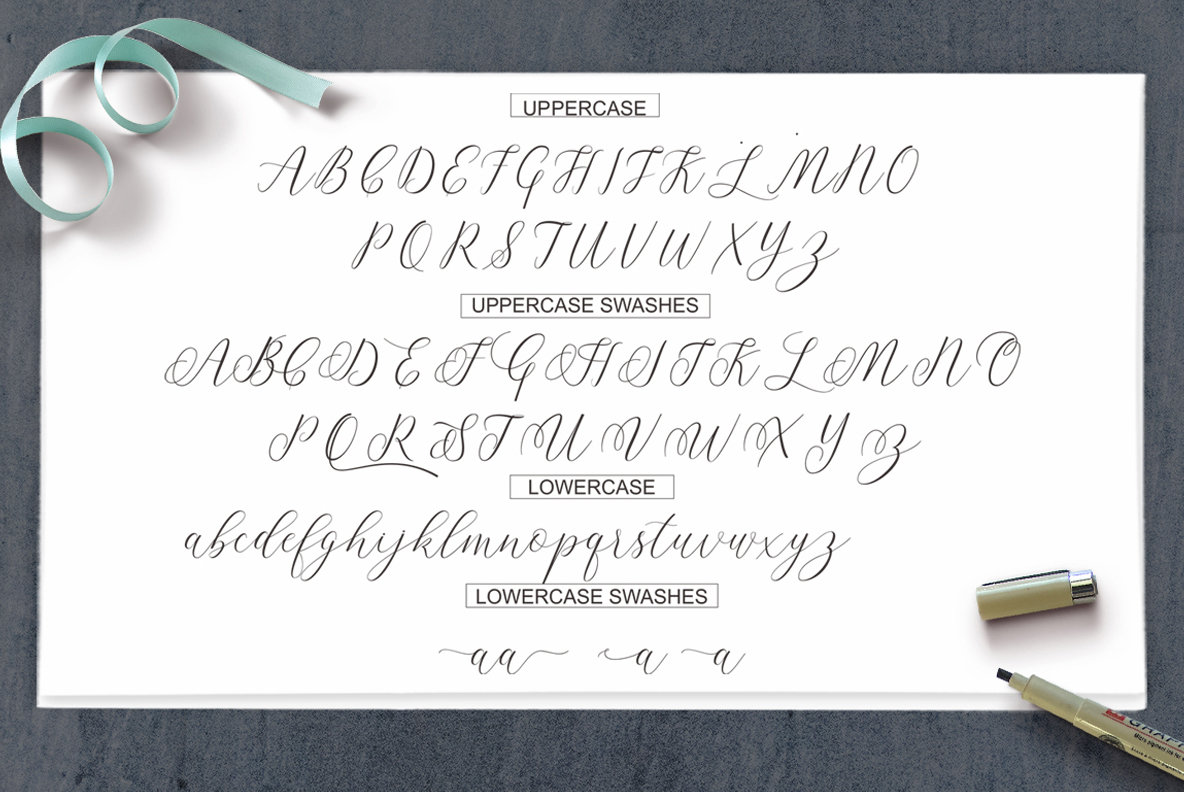 UPPERCASE
A B C D E F G H I J K L M N O
P Q R S T U V W X Y Z
UPPERCASE SWASHES
A B C D E F G H I J K L M N O
P Q R S T U V W X Y Z
LOWERCASE
abcdefghijklmnopqrstuvwxyz
LOWERCASE SWASHES
aa a a